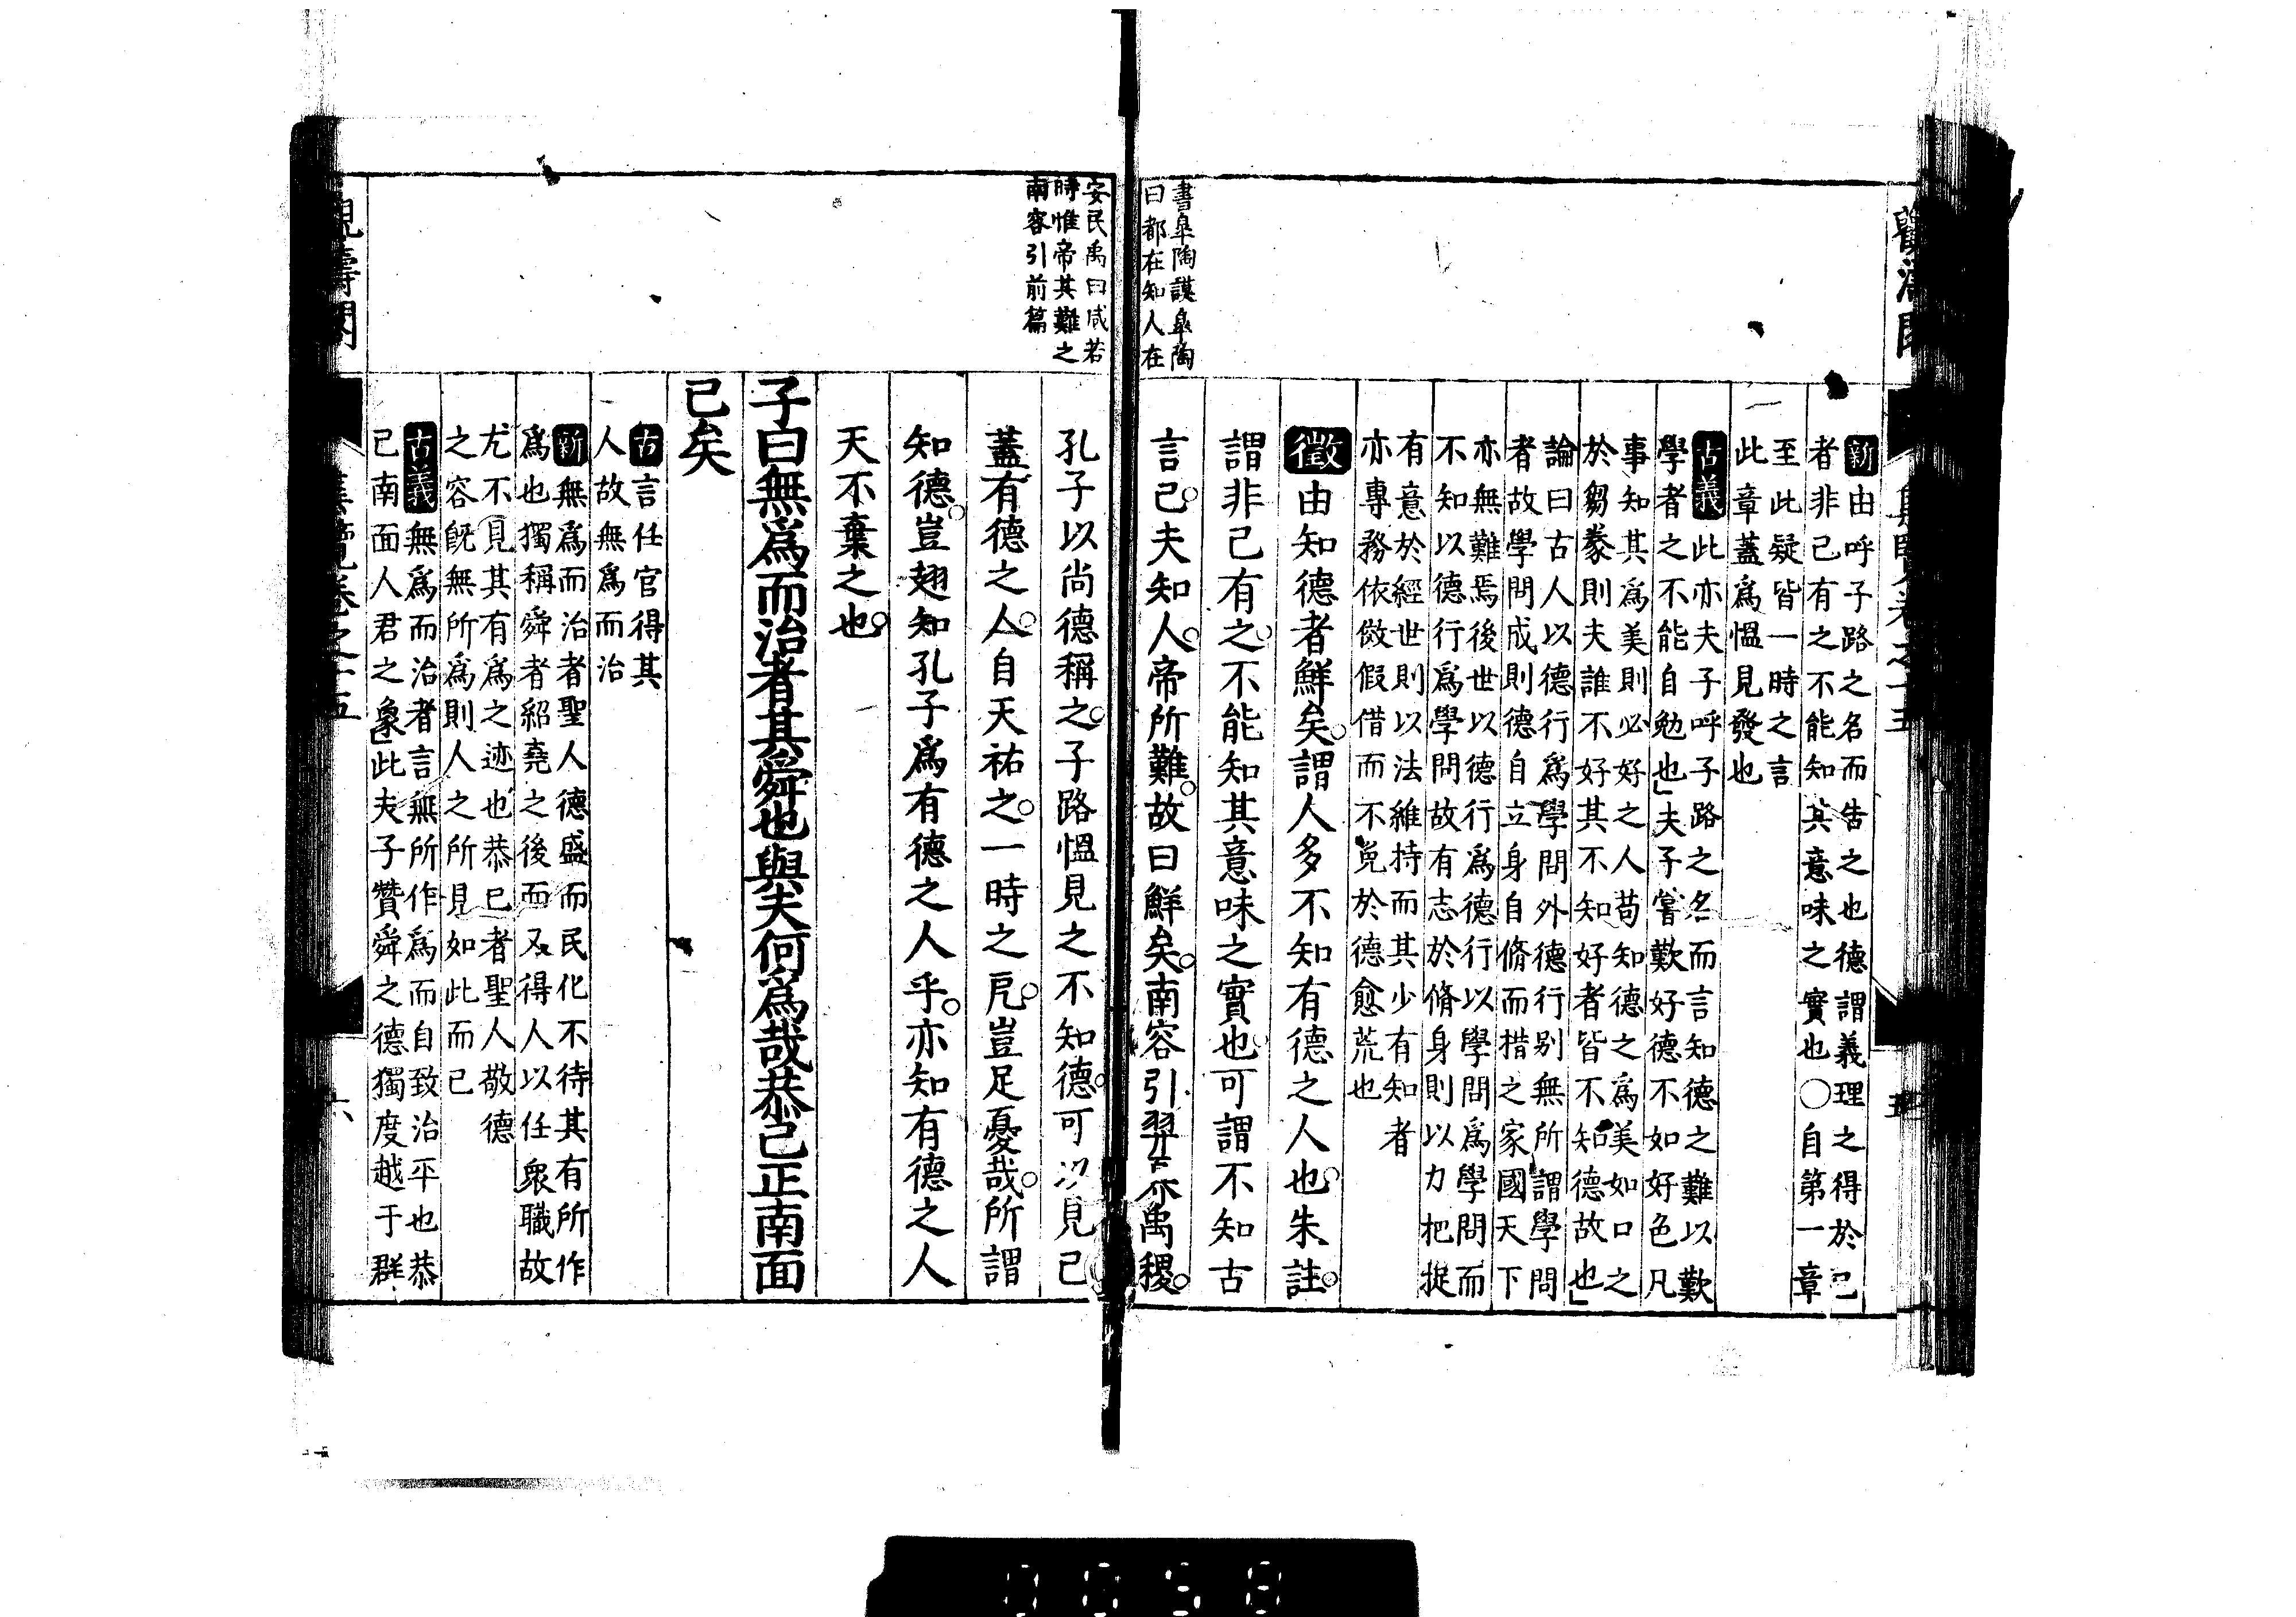 書皐陶謨皐陶
曰都在知人在
新由呼子路之名而告之也德謂義理之得於己
者非己有之不能知其意味之實也〇自第一章
至此疑皆一時之言
此章蓋爲慍見發也
古義此亦夫子呼子路之名而言知德之難以歎
學者之不能自勉也」夫子嘗歎好德不如好色凡
事知其爲美則必好之人苟知德之爲美如口之
於芻豢則夫誰不好其不知好者皆不知德故也」
論曰古人以德行爲學問外德行別無所謂學問
者故學問成則德自立身自脩而措之家國天下
亦無難焉後世以德行爲德行以學問爲學問而
不知以德行爲學問故有志於脩身則以力把捉
有意於經世則以法維持而其少有知者
亦專務依倣假借而不免於德愈荒也
徵由知德者鮮矣。謂人多不知有德之人也。朱註。
謂非己有之。不能知其意味之實也。可謂不知古
言已。夫知人。帝所難。故曰鮮矣。南容引羿奡禹稷。
安民禹曰咸若
時惟帝其難之
南容引前篇
孔子以尚德稱之。子路慍見之不知德。可以見已
蓋有德之人。自天祐之。一時之戹。豈足憂哉。所謂
知德。豈翅知孔子爲有德之人乎。亦知有德之人
天不棄之也。
子曰無爲而治者其舜也與夫何爲哉恭己正南面
已矣
古言任官得其
人故無爲而治
新無爲而治者聖人德盛而民化不待其有所作
爲也獨稱舜者紹堯之後而又得人以任衆職故
尤不見其有爲之迹也恭已者聖人敬德
之容旣無所爲則人之所見如此而已
古義無爲而治者言無所作爲而自致治平也恭
己南面人君之象」此夫子贊舜之德獨度越于群